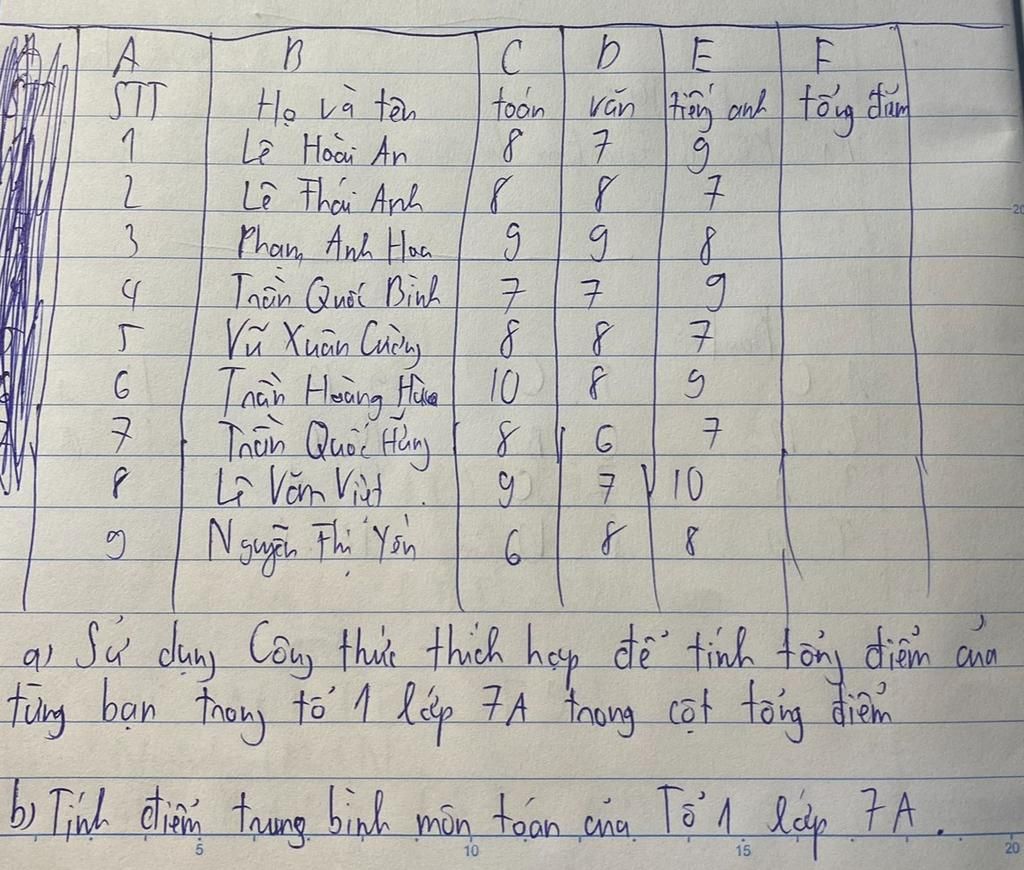 A B C D E F
STT Họ và tên toán văn tiếng anh tổng điểm
1 Lê Hoài An 8 7 9
2 Lê Thái Anh 8 8 7
3 Phạm Anh Hoa 9 9 8
4 Trần Quốc Bình 7 7 9
5 Vũ Xuân Cường 8 8 7
6 Trần Hoàng 10 8 9
7 Trần Quốc Hùng 8 6 7
8 Lê Văn Việt 9 7 10
9 Nguyễn Thị Yến 6 8 8
a) Sử dụng Công thức thích hợp để tính tổng điểm của
từng bạn trong tổ 1 lớp 7A trong cột tổng điểm
b) Tính điểm trung bình môn toán của Tổ 1 lớp 7A.
5 10 15 20